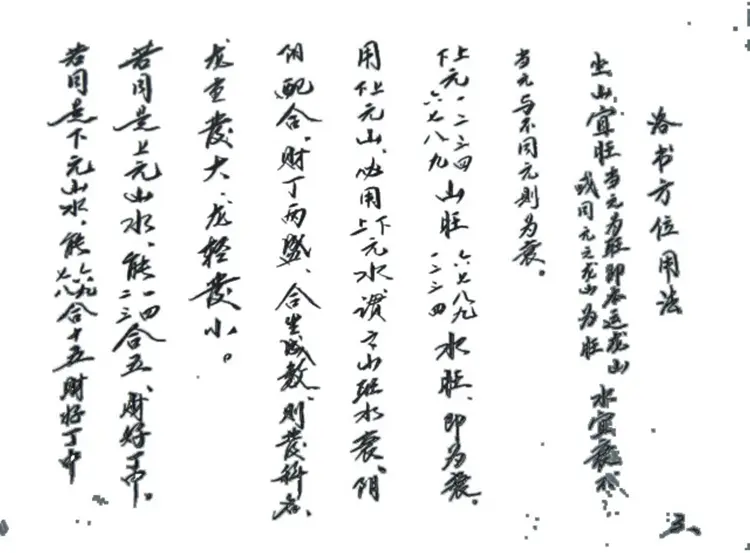 洛书方位用法
坐山宜旺 当元为旺即本运龙山 或同元之龙山为旺 水宜衰 不
当元与不同元则为衰。
上元一二三四 下元六七八九 山旺 六七八九 一二三四 水旺、即为衰。
用上下元山、必用下上元水谓之山旺水衰、阴
阳配合、财丁两盛、合生成数、则发科名、
龙重发大、龙轻发小。
若同是上元山水、能一四二三合五、财好丁中。
若同是下元山水、能六九七八合十五财好丁中
三、